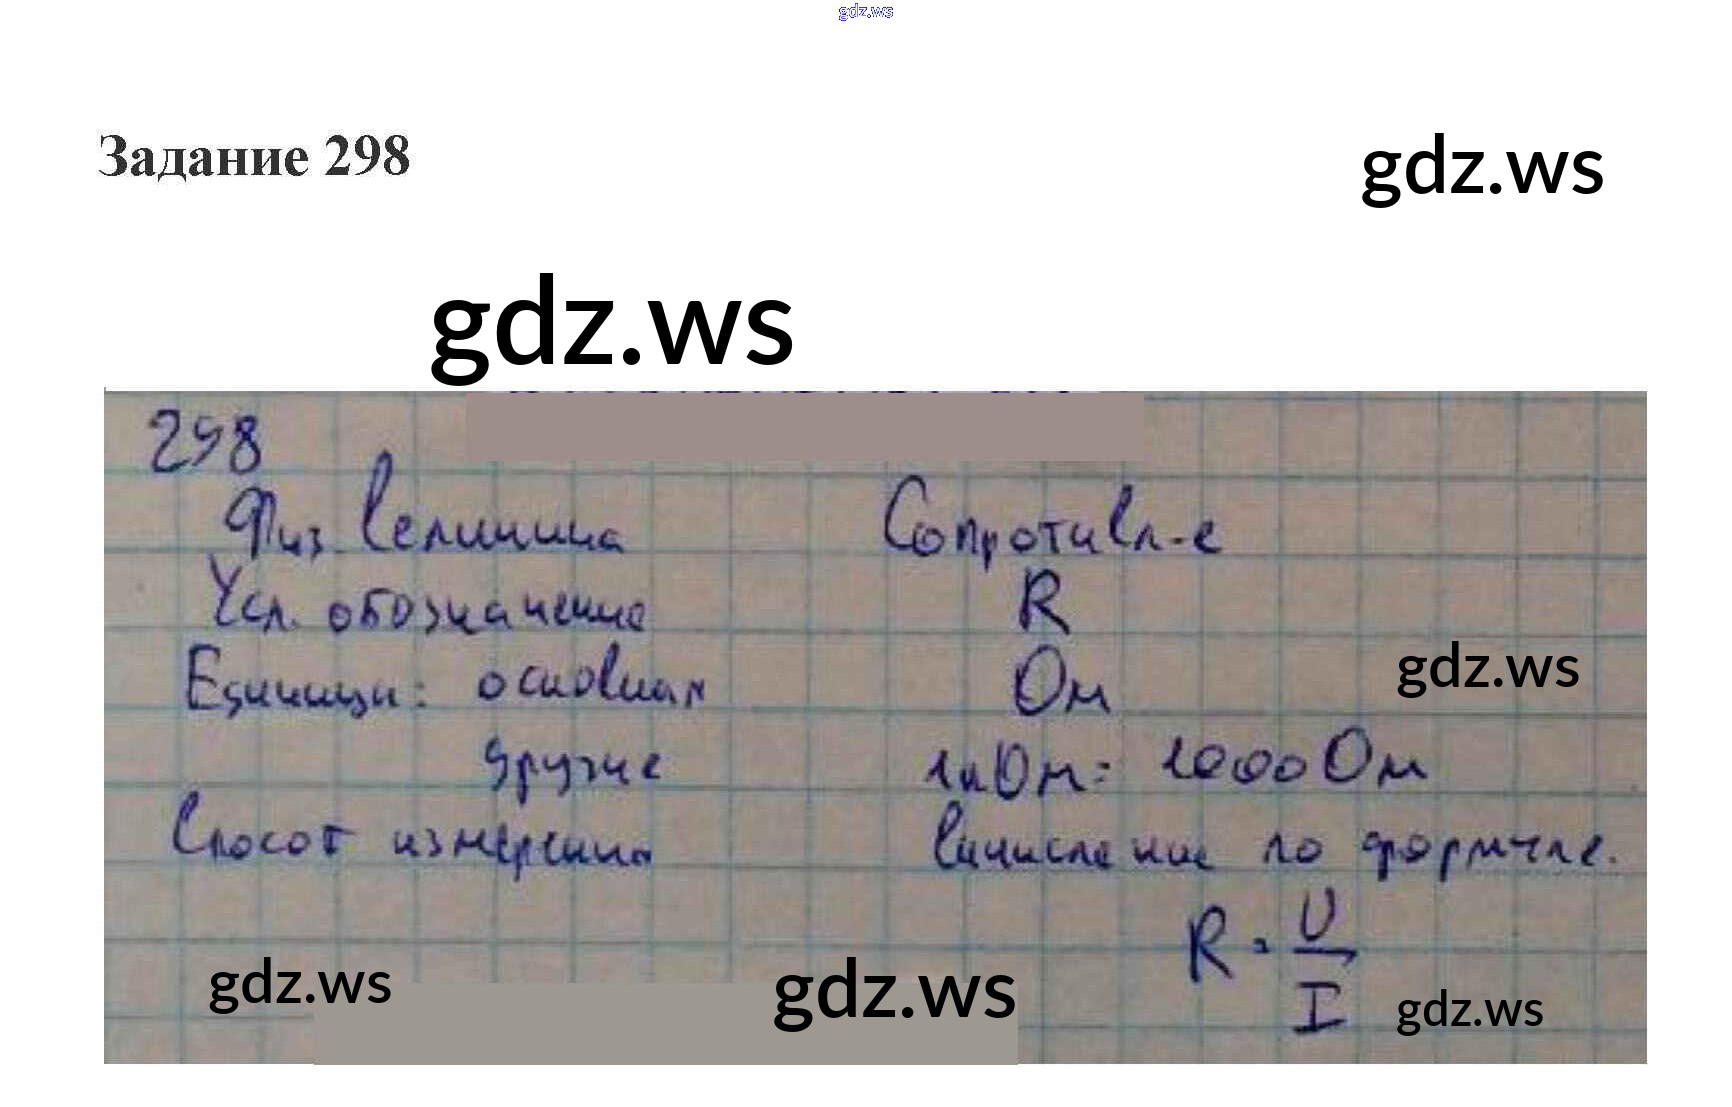 gdz.ws
Задание 298
gdz.ws
gdz.ws
298
Физ величина Сопротивл-е
Усл. обозначение R
Единицы: основная Ом
gdz.ws
другие 1кОм = 1000 Ом
Способ измерения вычисление по формуле.
R = U/I
gdz.ws
gdz.ws
gdz.ws